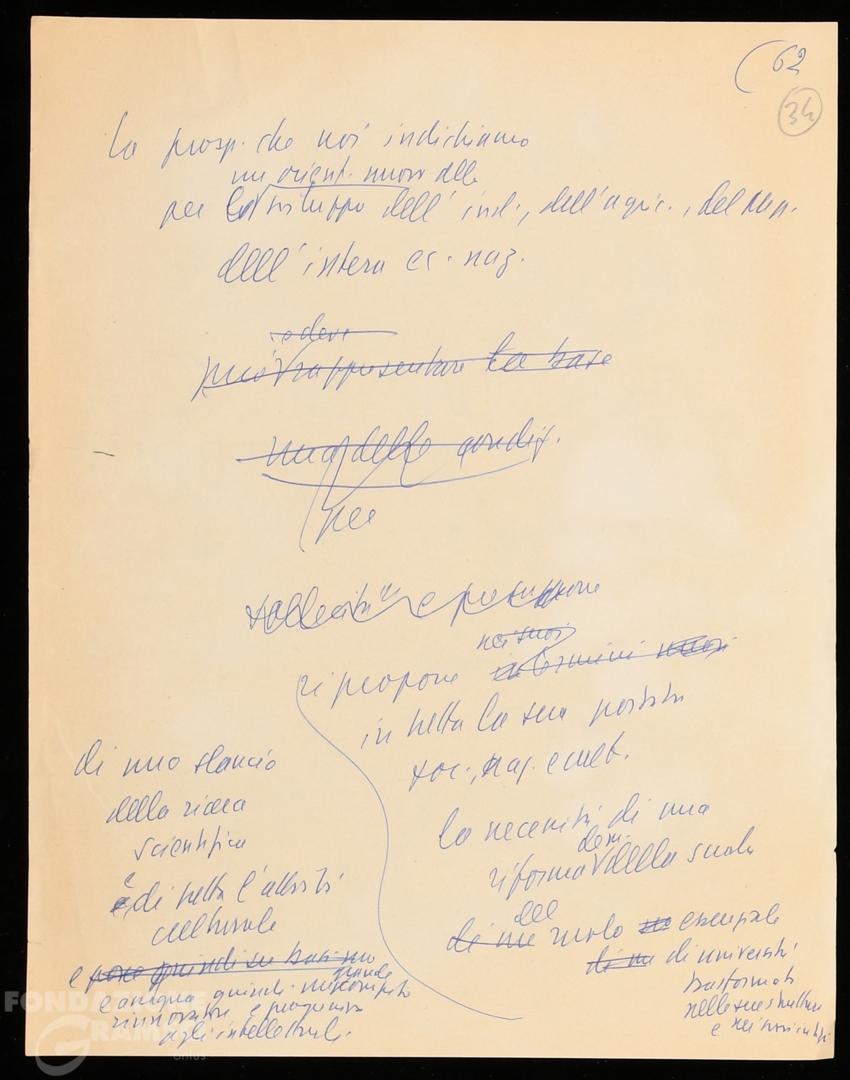 (62
34
la prosp. che noi indichiamo
un orient. nuovo alle
per lo sviluppo dell'ind., dell'agric., del
dell'intera ec. naz.
o deve
può rappresentare la base
una delle condiz.
per
sollecita e presuppone
nei suoi
ripropone in termini nuovi
in tutta la sua portata
soc., naz. e cult.
la necessità di una
dem.
riforma della scuola
del
di un ruolo essenziale
di un di università
trasformata
nelle sue strutture
e nei suoi
di uno slancio
della ricerca
scientifica
e di tutta l'attività
culturale
e pone quindi su basi
grande
e assegna quindi un compito
rinnovatore e progressivo
agli intellettuali.
FONDAZIONE
GRAMSCI
onlus